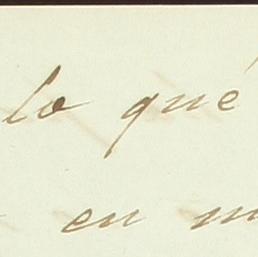 lo qué
en